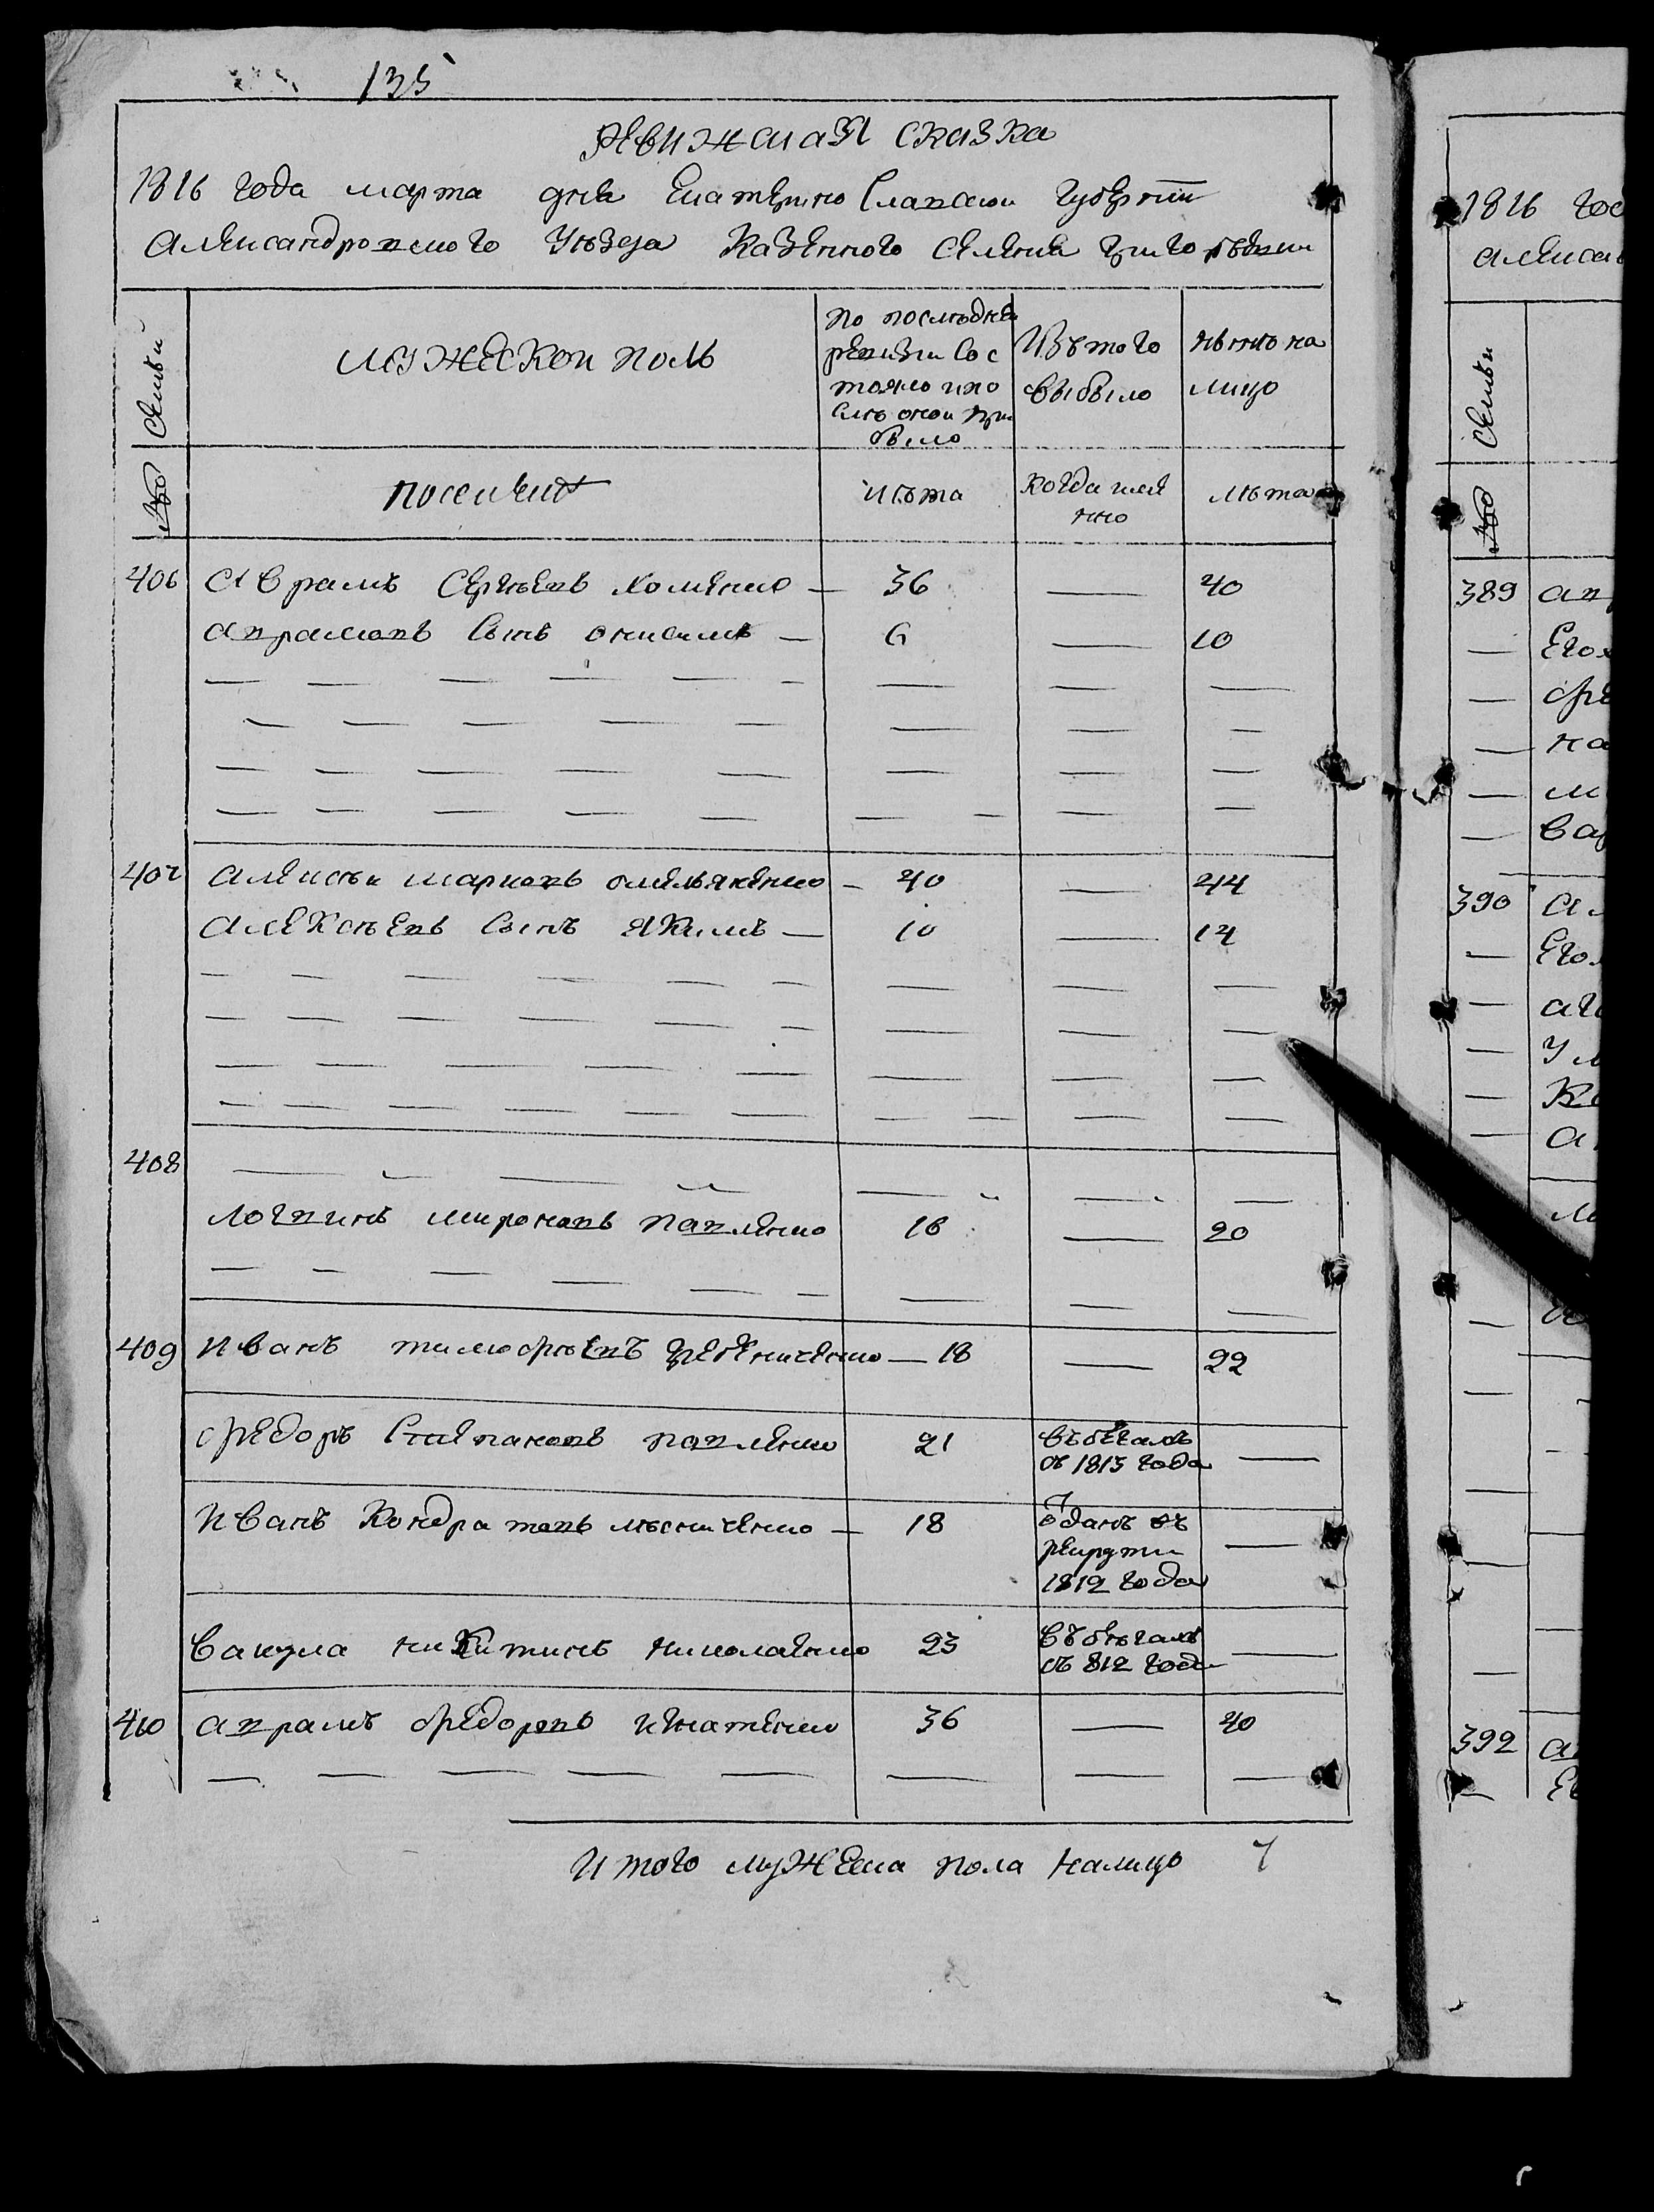 135
Ревижская сказка
1816 года марта дня Екатерино Славской губернии
Александровского Уезда Казенного Селения Григорьевки
Семьи
Мужеской поль
по последней
ревизии Сос
тояло ипо
слѣ оной при
было
Изъ того
выбыло
нынѣ на
лицо
№
поселяне
лѣта
Когда имен
но
лѣта
406 Аврамъ Сергѣевъ хоменко — 36 — 40
аврамовъ Сынъ онисимъ — 6 — 10
407 Алексѣи марковъ омельяненко — 40 — 44
Алексѣевъ Сынъ Якимъ — 10 — 14
408
Логвинъ мироновъ павленко 16 — 20
409 Иванъ тимофѣевъ гребениченко — 18 — 22
Федоръ Степановъ павленко 21 въ бегахъ —
съ 1813 года
Иванъ Кондратовъ мѣсниченко — 18 одан въ —
рекруты
1812 года
Вакула никитинъ николаенко 23 въ бѣгахъ —
съ 812 года
410 аврамъ федоровъ игнатенко 36 — 40
Итого мужеска пола налицо 7
1816 год
Алексан
Семьи
№
389 ав
Его
фе
на
м
вар
390 Ал
Его
аг
Ул
Ко
а
392 а
Ев